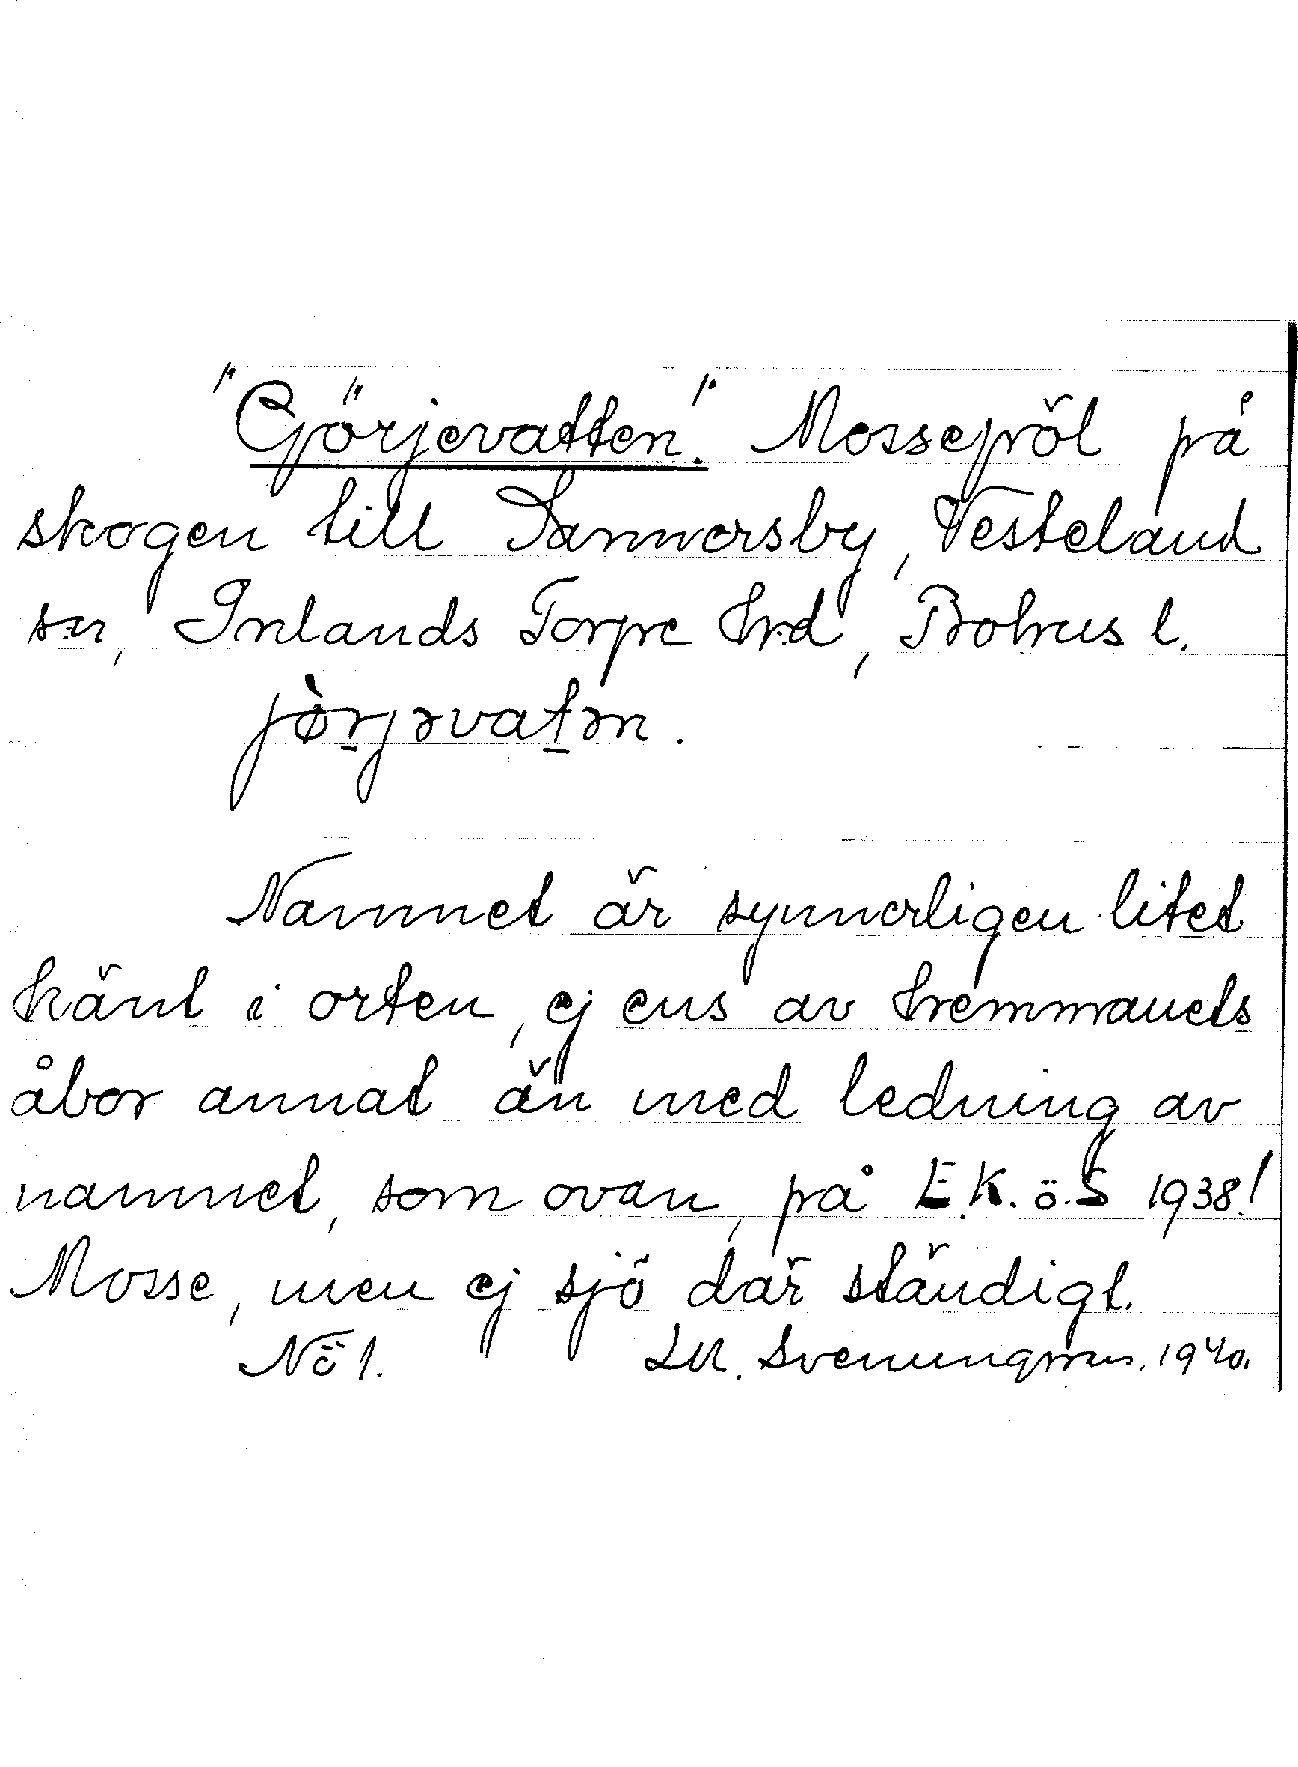 "Gjörjevatten." Mossepöl på
skogen till Sannersby, Vesteland
sn, Inlands Torpe hrd, Bohus l.
jø̀rjəvatən.
Namnet är synnerligen litet
känt i orten, ej ens av hemmanets
åbor annat än med ledning av
namnet, som ovan, på E.K. ö. S 1938!
Mosse, men ej sjö där ständigt.
Nö 1. LM. Svenungsson. 1940.